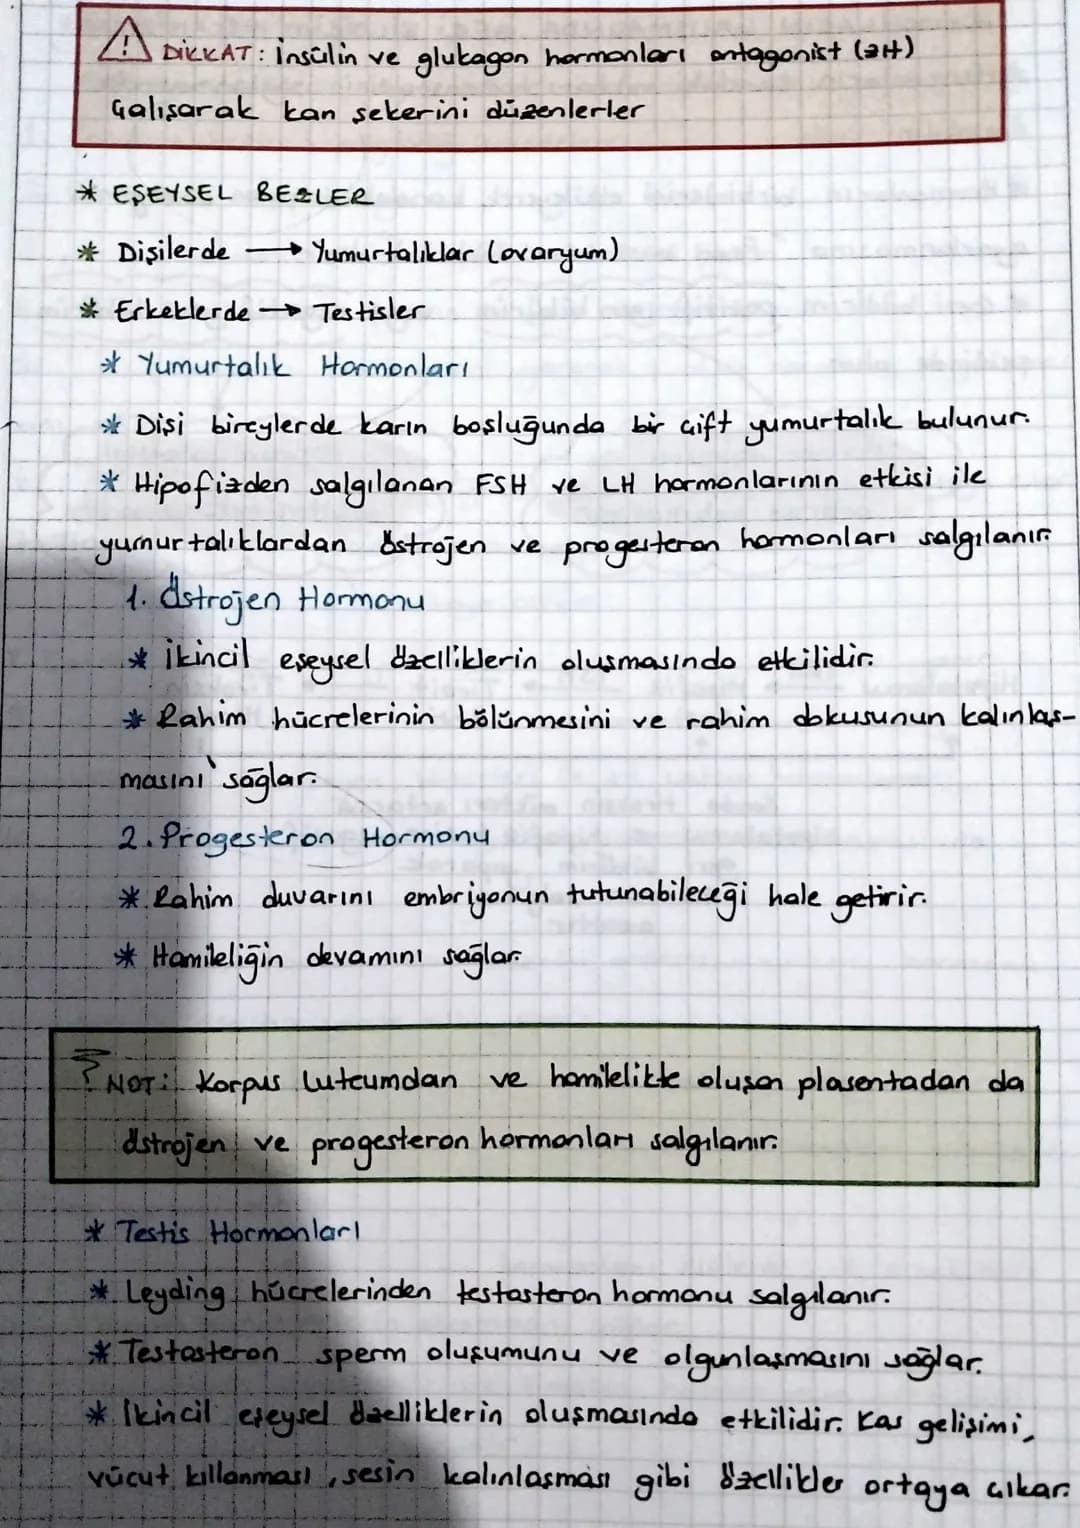 DİKKAT: İnsülin ve glukagon hormonları antagonist (zıt)
Çalışarak kan şekerini düzenlerler
* EŞEYSEL BEZLER
* Dişilerde → Yumurtalıklar (ovaryum)
* Erkeklerde → Testisler
* Yumurtalık Hormonları
* Dişi bireylerde karın boşluğunda bir çift yumurtalık bulunur.
* Hipofizden salgılanan FSH ve LH hormonlarının etkisi ile
yumurtalıklardan östrojen ve progesteron hormonları salgılanır.
1. Östrojen Hormonu
* İkincil eşeysel özelliklerin oluşmasında etkilidir.
* Rahim hücrelerinin bölünmesini ve rahim dokusunun kalınlaş-
masını sağlar.
2. Progesteron Hormonu
* Rahim duvarını embriyonun tutunabileceği hale getirir.
* Hamileliğin devamını sağlar.
NOT: Korpus luteumdan ve hamilelikte oluşan plasentadan da
östrojen ve progesteron hormonları salgılanır.
* Testis Hormonları
* Leyding hücrelerinden testosteron hormonu salgılanır.
* Testosteron sperm oluşumunu ve olgunlaşmasını sağlar.
* İkincil eşeysel özelliklerin oluşmasında etkilidir. Kas gelişimi,
vücut kıllanması, sesin kalınlaşması gibi özellikler ortaya çıkar.